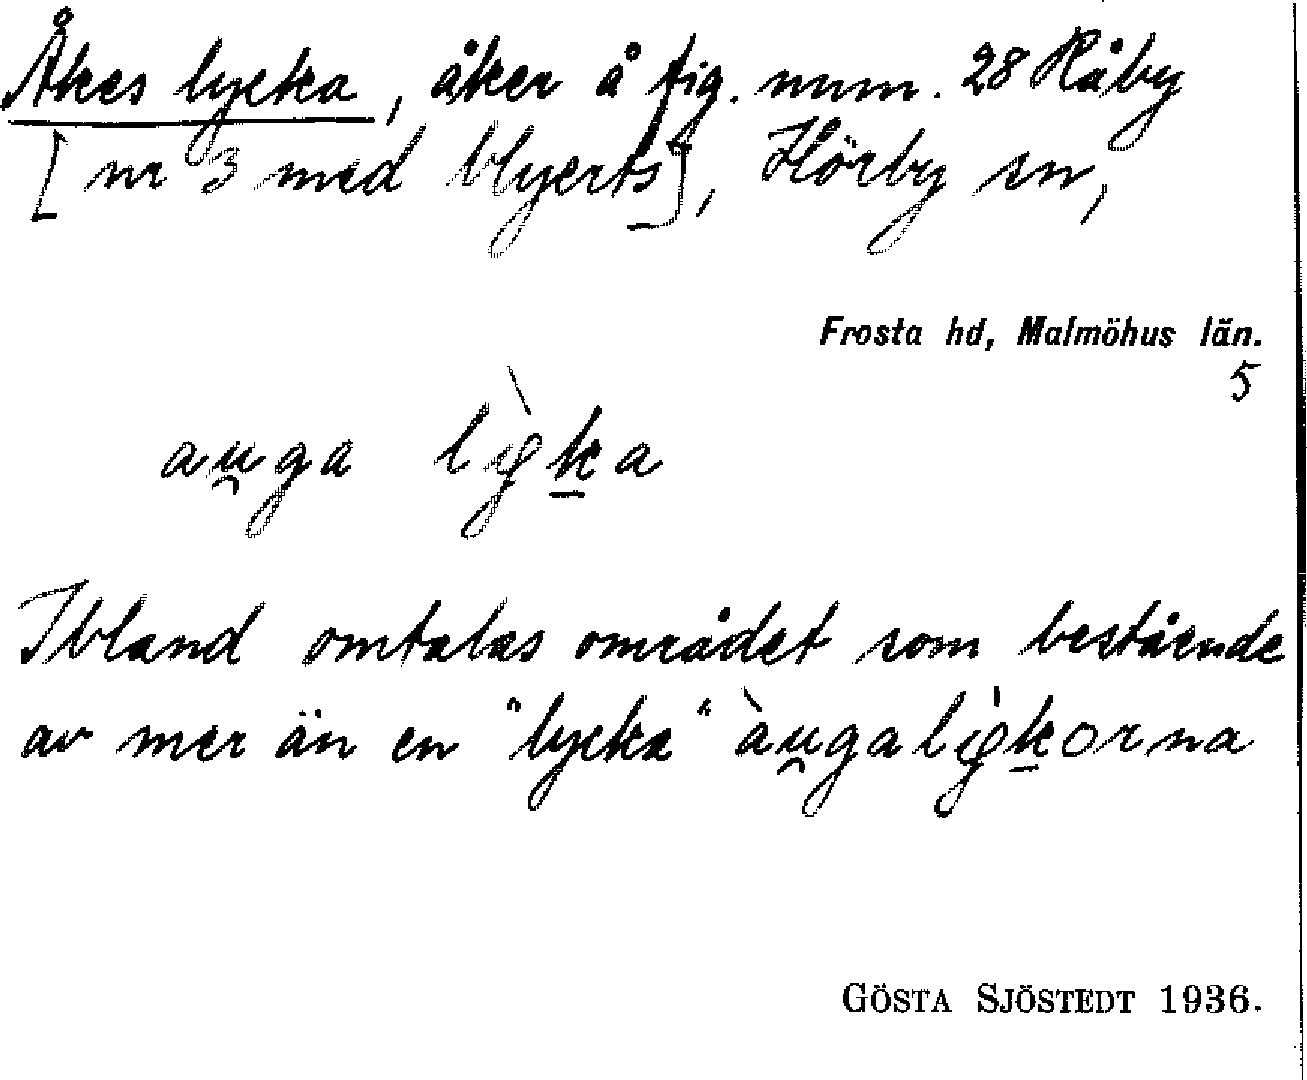 Åkes lycka, åker å fig. num. 28 Råby
[nr 3 med blyerts], Hörby sn,
Frosta hd, Malmöhus län.
5
au̯ga lỳk̠a
Ibland omtalas området som bestående
av mer än en "lycka" àu̯galỳk̠orna
GÖSTA SJÖSTEDT 1936.